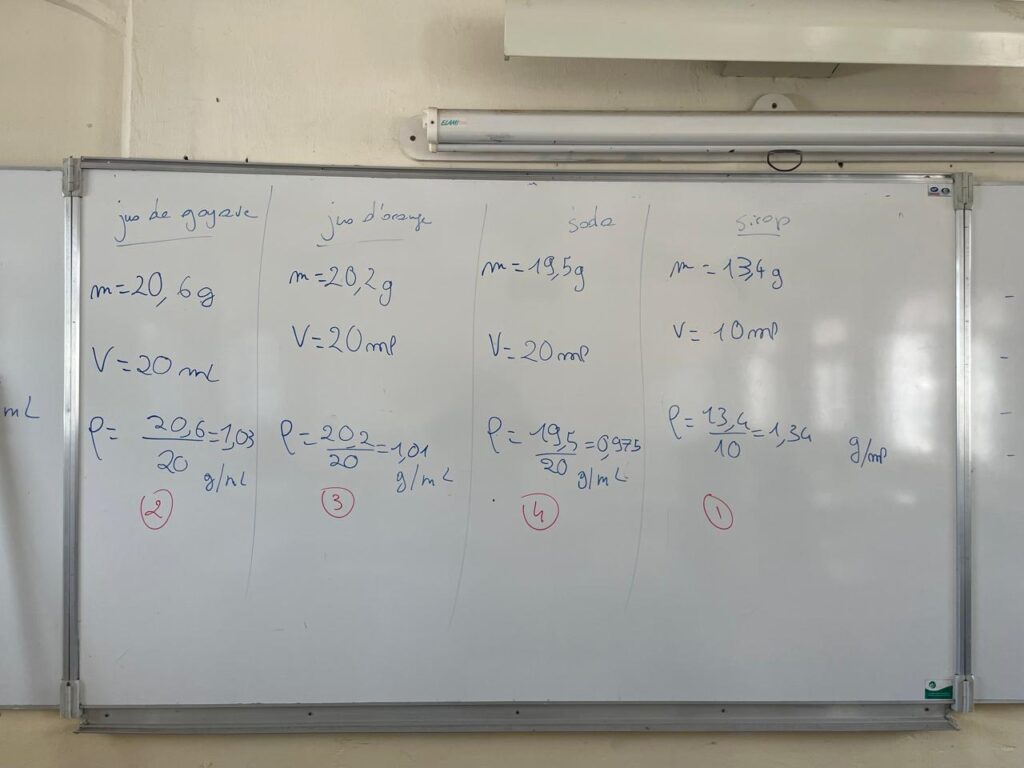 ELAMI
jus de goyave
m=20,6g
V=20mL
ρ= 20,6/20=1,03
g/mL
2
jus d'orange
m=20,2g
V=20ml
ρ=20,2/20=1,01
g/mL
3
soda
m=19,5g
V=20ml
ρ=19,5/20=0,975
g/mL
4
sirop
m=13,4g
V=10ml
ρ=13,4/10=1,34 g/ml
1
mL